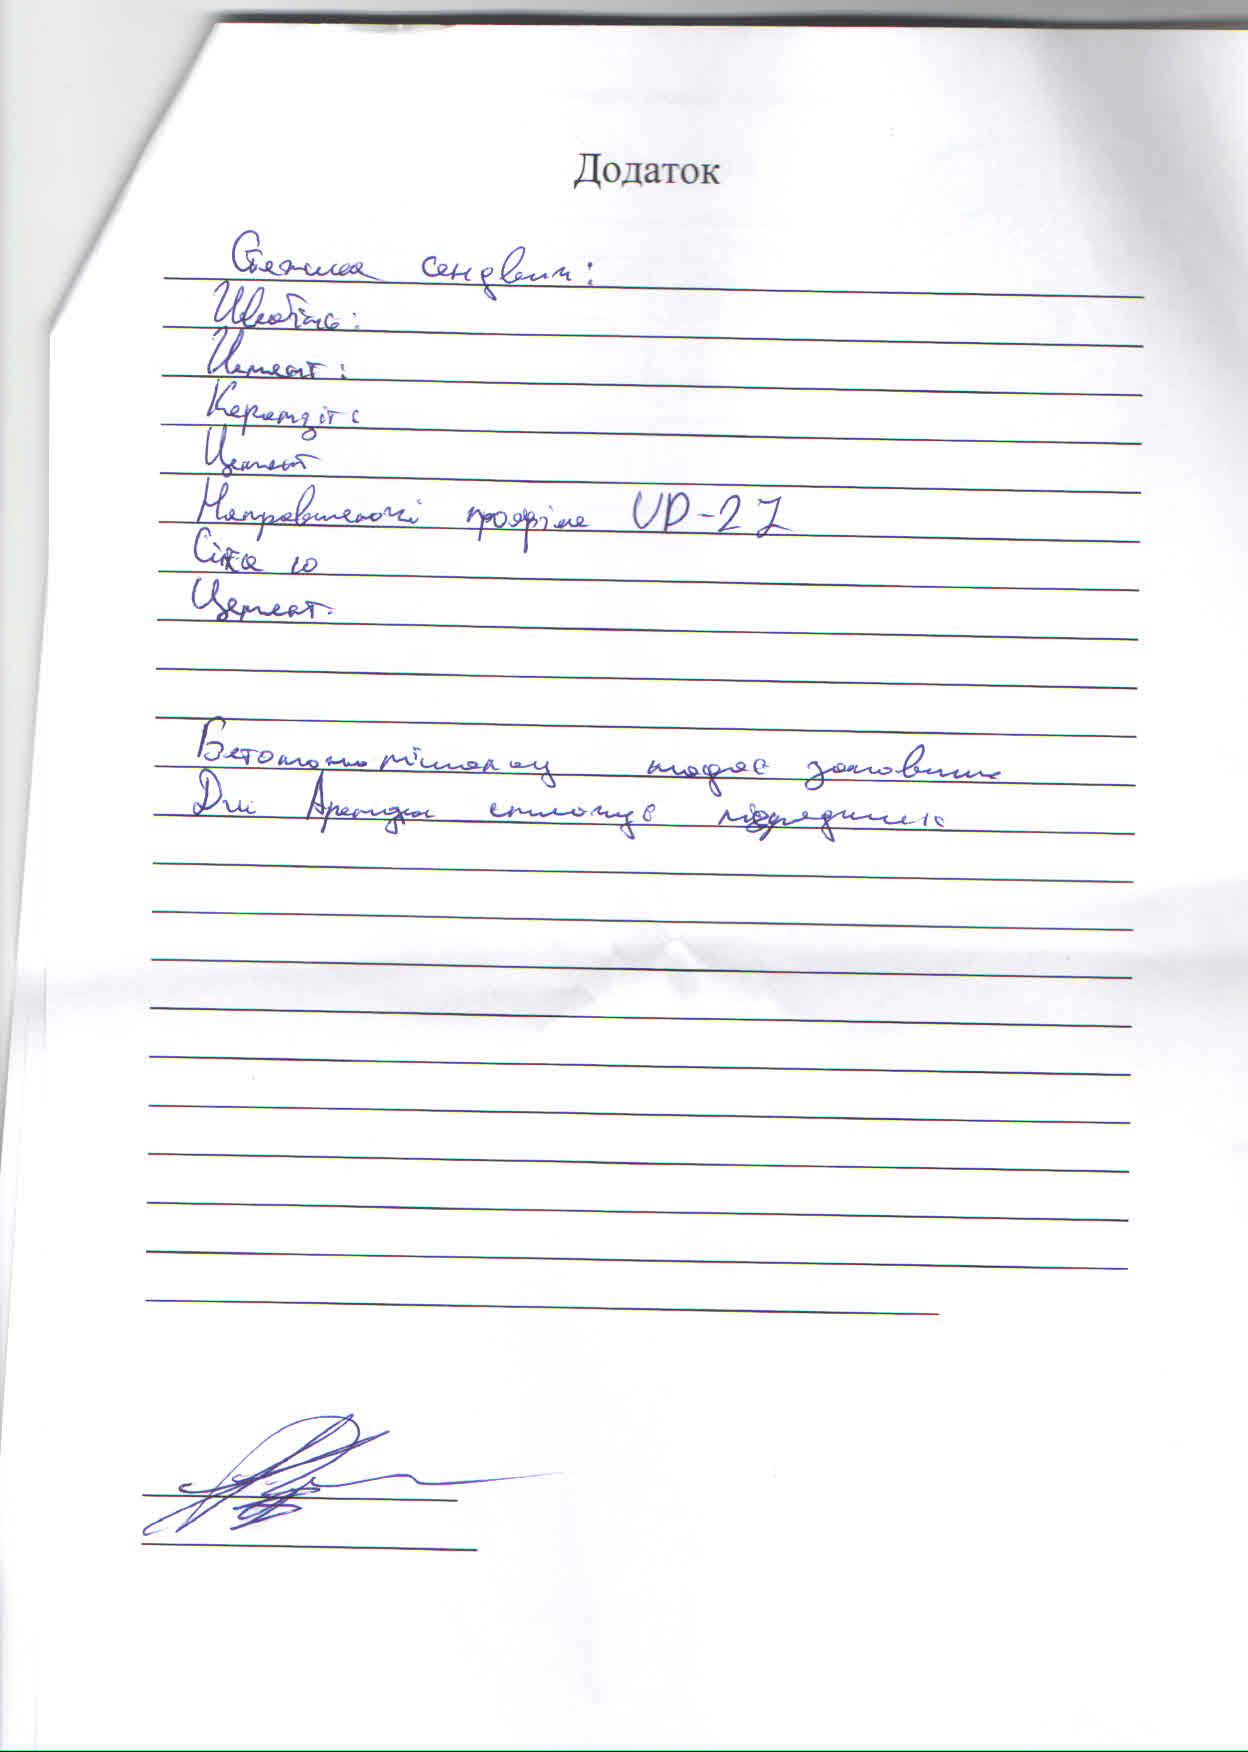 Додаток
Стяжка сендвіч:
Щебінь:
Цемент:
Керамзіт:
Цемент
Направляючі профіля UD-27
Сітка 10
Цемент.
Бетономішалку надає замовник
Дні Аренди сплачує підрядник